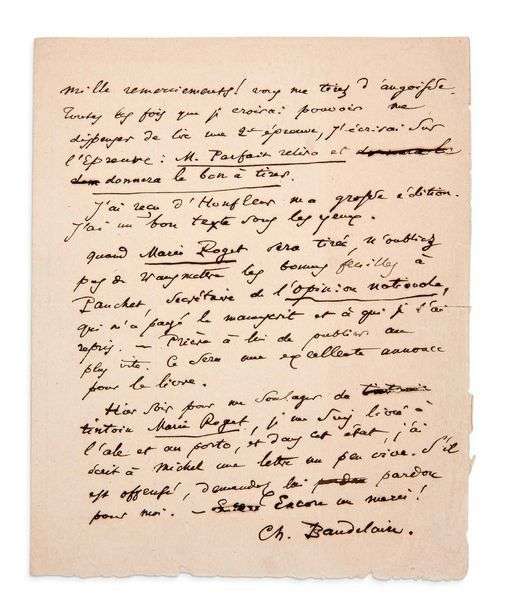 Mille remerciements! vous me tirez d'angoisse.
Toutes les fois que je croirai pouvoir me
dispenser de lire une 2e épreuve, j'écrirai sur
l'Epreuve: M. Parfait relira et
donnera le bon à tirer.
J'ai reçu d'Honfleur ma grosse édition.
J'ai un bon texte sous les yeux.
quand Marie Roget sera tiré, n'oubliez
pas de transmettre les bonnes feuilles à
Pauchet, secrétaire de l'opinion nationale,
qui m'a payé le manuscrit et à qui je l'ai
repris. — Prière à lui de publier au
plus vite. Ce sera une excellente annonce
pour le livre.
Hier soir pour me soulager de
tintoin Marie Roget, je me suis livré à
l'ale et au porto, et dans cet état, j'ai
écrit à Michel une lettre un peu vive. S'il
est offensé, demandez lui pardon
pour moi. — Encore un merci!
Ch. Baudelaire.